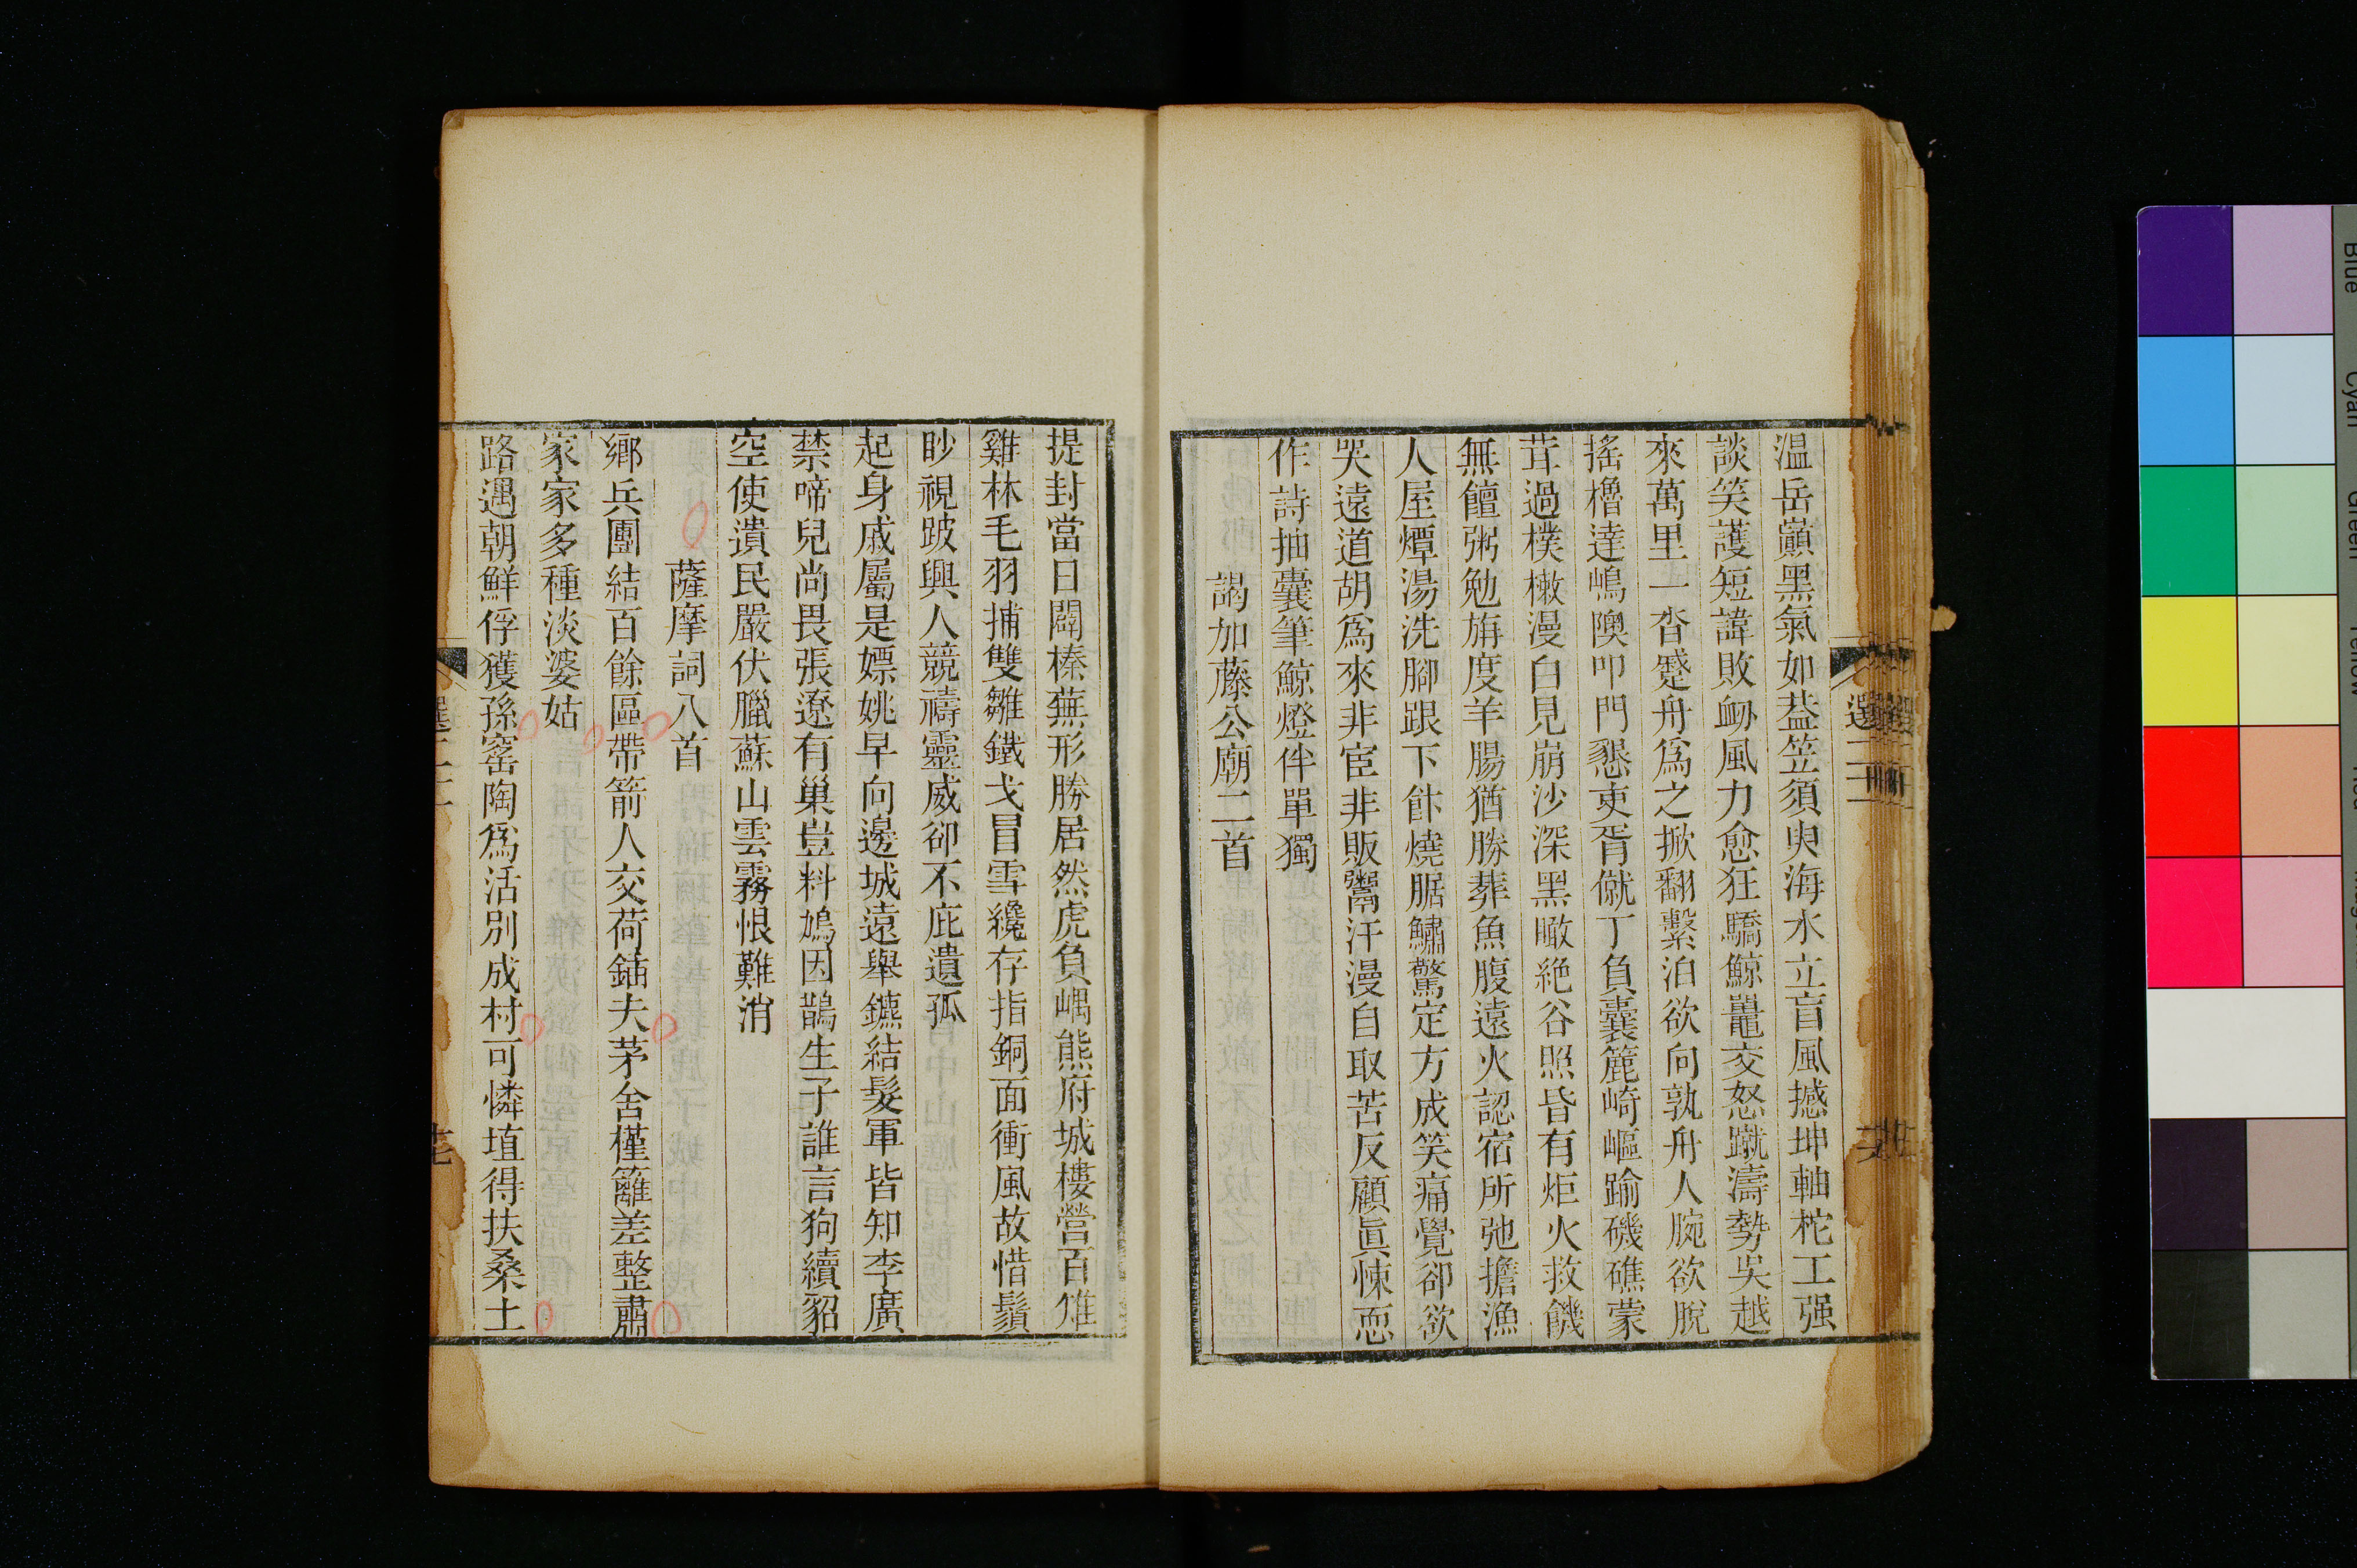 温岳巓黑氣如葢笠須臾海水立盲風撼坤軸柁工强
談笑護短諱敗衂風力愈狂驕鯨鼉交怒蹴濤勢吳越
來萬里一杳蹙舟爲之掀翻繫泊欲向孰舟人腕欲脫
搖櫓達嶋隩叩門懇吏胥僦丁負囊簏崎嶇踰磯礁蒙
茸過樸樕漫白見崩沙深黑瞰絶谷照昏有炬火救饑
無饘粥勉旃度羊腸猶勝葬魚腹遠火認宿所弛擔漁
人屋燂湯洗腳跟下飰燒腒鱐驚定方成笑痛覺卻欲
哭遠道胡爲來非宦非販鬻汗漫自取苦反顧眞悚恧
作詩抽囊筆鯨燈伴單獨
謁加藤公廟二首
提封當日闢榛蕪形勝居然虎負嵎熊府城樓營百雉
雞林毛羽捕雙雛鐵戈冒雪纔存指銅面衝風故惜鬚
眇視跛興人競禱靈威卻不庇遺孤
起身戚屬是嫖姚早向邊城遠舉鑣結髮軍皆知李廣
禁啼兒尚畏張遼有巢豈料鳩因鵲生子誰言狗續貂
空使遺民嚴伏臘蘇山雲霧恨難消
薩摩詞八首
鄉兵團結百餘區帶箭人交荷鍤夫茅舍槿籬差整肅
家家多種淡婆姑
路遇朝鮮俘獲孫窰陶爲活別成村可憐埴得扶桑土
選二